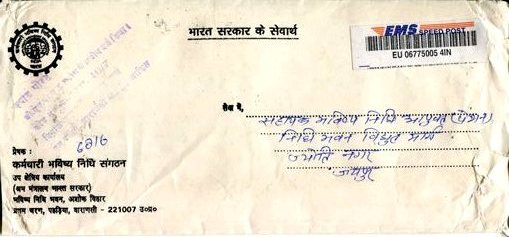 भारत सरकार के सेवार्थ
EMS SPEED POST
EU 06775005 4IN
सेवा में,
सहायक भविष्य निधि आयुक्त (पेंशन)
निधि भवन विद्युत मार्ग
ज्योति नगर
जयपुर
6816
प्रेषक :
कर्मचारी भविष्य निधि संगठन
उप क्षेत्रीय कार्यालय
(श्रम मंत्रालय भारत सरकार)
भविष्य निधि भवन, अशोक विहार
प्रथम चरण, पहड़िया, वाराणसी - 221007 उ०प्र०